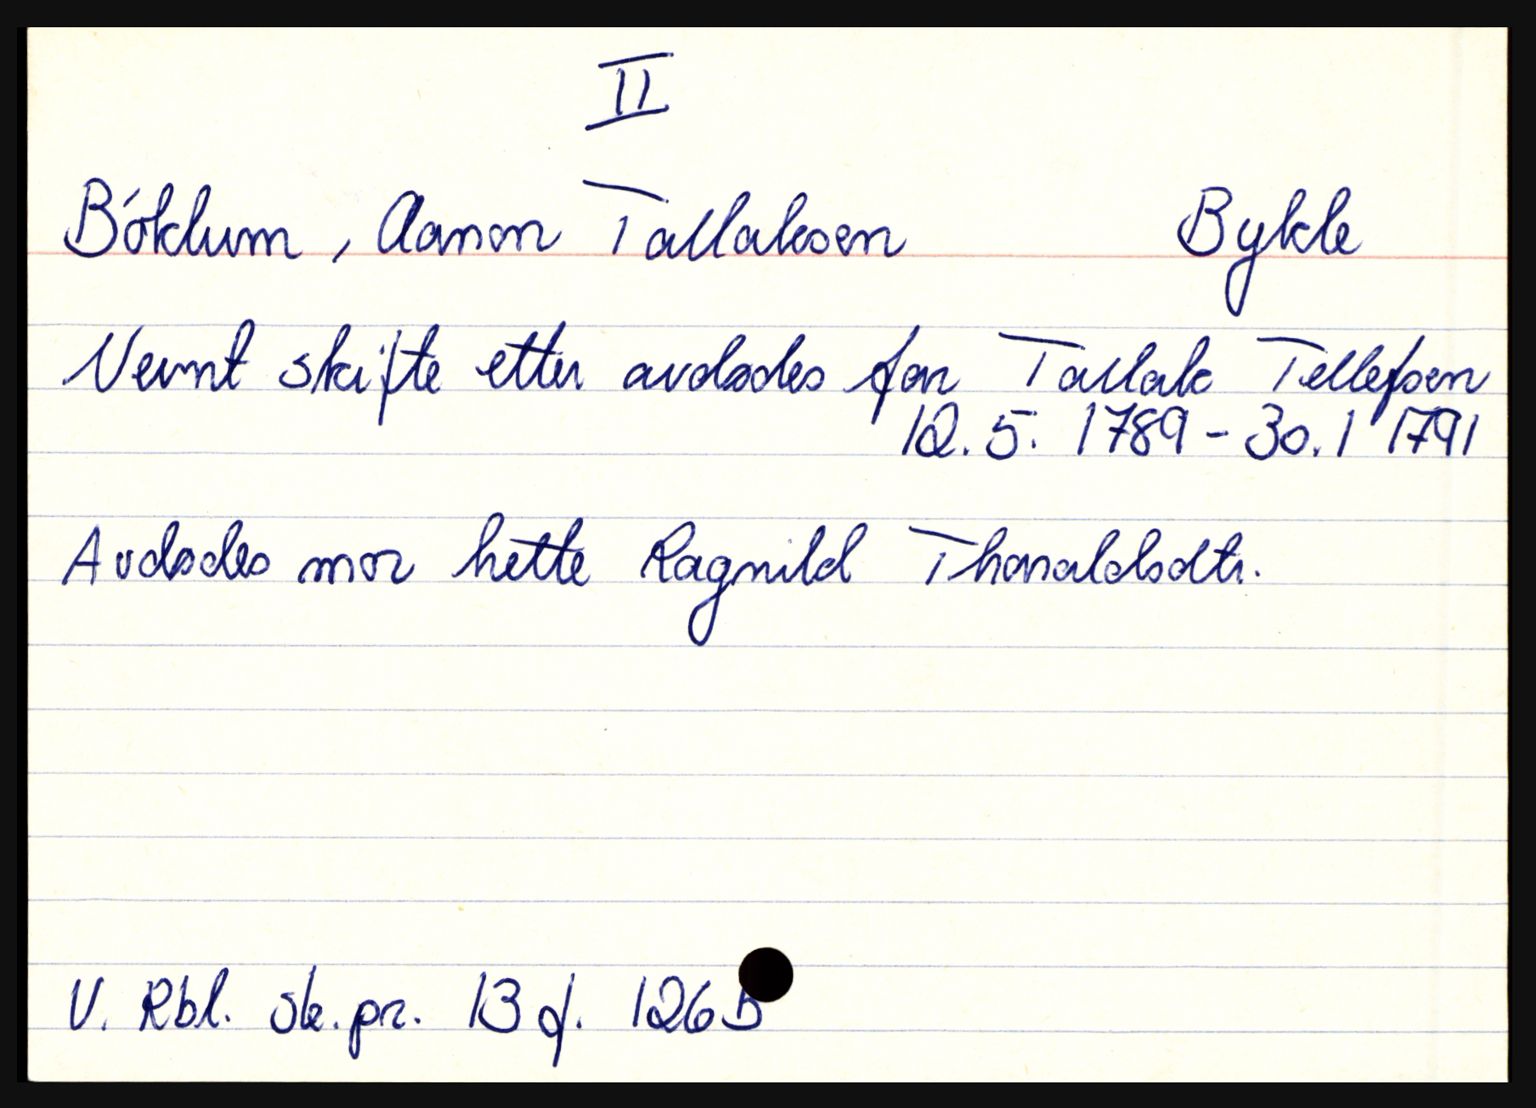 II
Bóklum, Aanon Tallaksen Bykle
Nevnt skifte etter avdødes far Tallak Tellefsen
12.5. 1789 - 30.1 1791
Avdødes mor hette Ragnild Tharaldsdtr.
V. Rbl. sk.pr. 13 f. 126 B